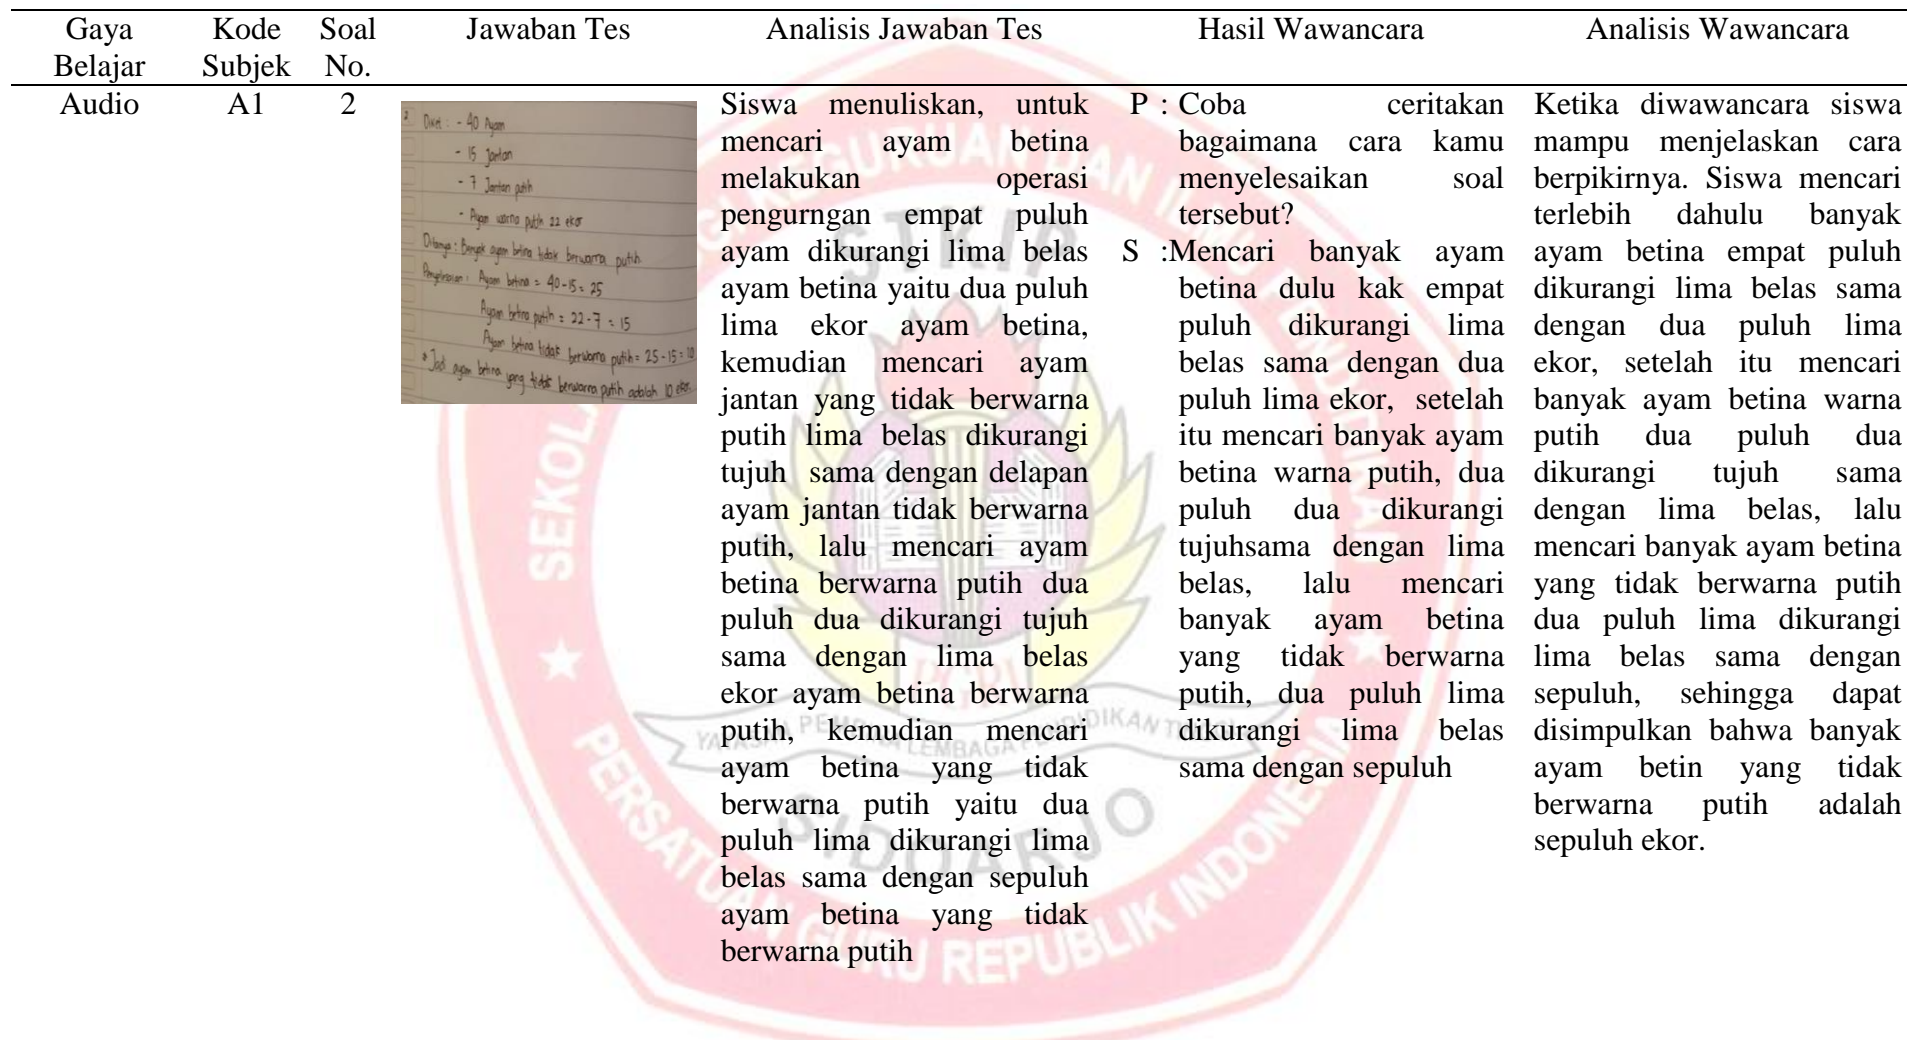 Gaya Belajar
Kode Subjek
Soal No.
Jawaban Tes
Analisis Jawaban Tes
Hasil Wawancara
Analisis Wawancara
Audio
A1
2
2 Diket : - 40 Ayam
- 15 Jantan
- 7 Jantan putih
- Ayam warna putih 22 ekor
Ditanya : Banyak ayam betina tidak berwarna putih
Penyelesaian : Ayam betina = 40-15 = 25
Ayam betina putih = 22-7 = 15
Ayam betina tidak berwarna putih = 25-15 = 10
* Jadi ayam betina yang tidak berwarna putih adalah 10 ekor.
Siswa menuliskan, untuk
mencari ayam betina
melakukan operasi
pengurngan empat puluh
ayam dikurangi lima belas
ayam betina yaitu dua puluh
lima ekor ayam betina,
kemudian mencari ayam
jantan yang tidak berwarna
putih lima belas dikurangi
tujuh sama dengan delapan
ayam jantan tidak berwarna
putih, lalu mencari ayam
betina berwarna putih dua
puluh dua dikurangi tujuh
sama dengan lima belas
ekor ayam betina berwarna
putih, kemudian mencari
ayam betina yang tidak
berwarna putih yaitu dua
puluh lima dikurangi lima
belas sama dengan sepuluh
ayam betina yang tidak
berwarna putih
P : Coba ceritakan
bagaimana cara kamu
menyelesaikan soal
tersebut?
S :Mencari banyak ayam
betina dulu kak empat
puluh dikurangi lima
belas sama dengan dua
puluh lima ekor, setelah
itu mencari banyak ayam
betina warna putih, dua
puluh dua dikurangi
tujuhsama dengan lima
belas, lalu mencari
banyak ayam betina
yang tidak berwarna
putih, dua puluh lima
dikurangi lima belas
sama dengan sepuluh
Ketika diwawancara siswa
mampu menjelaskan cara
berpikirnya. Siswa mencari
terlebih dahulu banyak
ayam betina empat puluh
dikurangi lima belas sama
dengan dua puluh lima
ekor, setelah itu mencari
banyak ayam betina warna
putih dua puluh dua
dikurangi tujuh sama
dengan lima belas, lalu
mencari banyak ayam betina
yang tidak berwarna putih
dua puluh lima dikurangi
lima belas sama dengan
sepuluh, sehingga dapat
disimpulkan bahwa banyak
ayam betin yang tidak
berwarna putih adalah
sepuluh ekor.
STKIP
PGRI
SIDOARJO
PERSATUAN GURU REPUBLIK INDONESIA